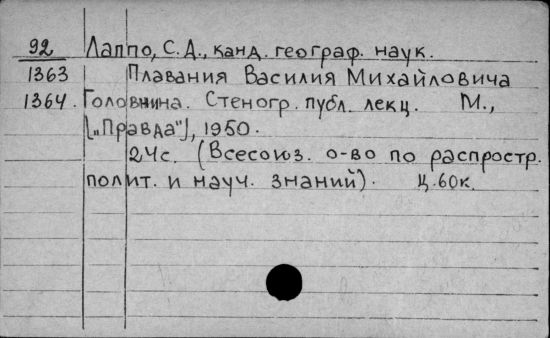 92 Лаппо, С.Д., канд. географ. наук.
1363 Плавания Василия Михайловича
1364. Головнина. Стеногр. публ. лекц. М.,
[„Правда"], 1950.
24с. (Всесоюз. о-во по распростр.
полит. и науч. знаний). Ц. 60к.